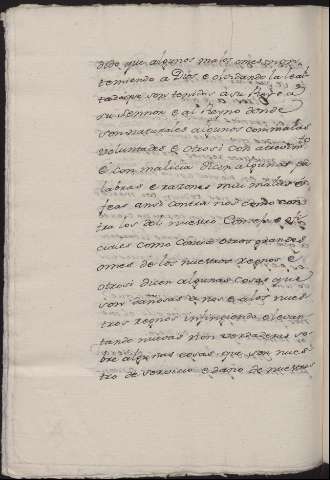 dido que algunos males omes non
temiendo a Dios e olvidando la leal
tad a que son tenidos a su Rey e a
su sennor e al Reyno donde
son naturales algunos con malas
voluntades e otrosi con atrevim.to
e con malicia dicen algunas pa
labras e razones mui malas e
feas ansi contra nos como con
tra los del nuestro Consejo e ofi
ciales como contra otros grandes
omes de los nuestros Regnos e
otrosi dicen algunas cosas que
son dañosas a nos e a los nues
tros regnos infingiendo e levan
tando nuevas non verdaderas so
bre algunas cosas que son nues
tro de servicio e daño de nuestros